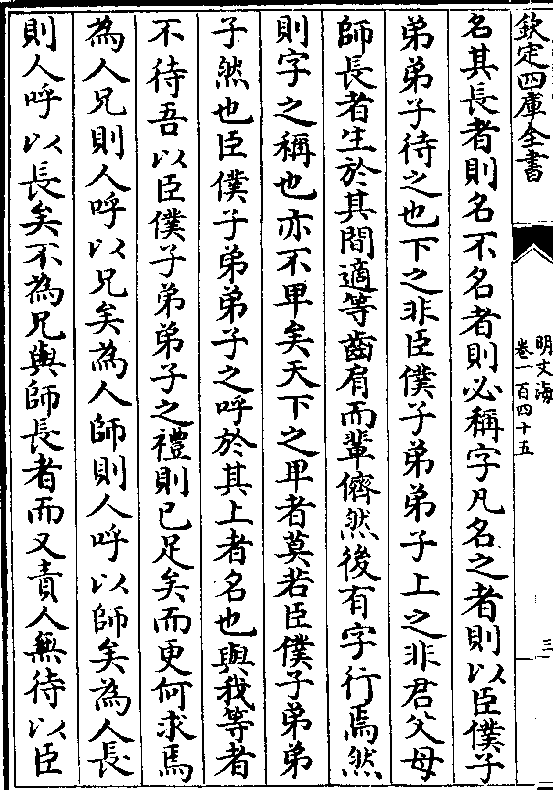 欽定四庫全書
明文海
卷一百四十五
三
名其長者則名不名者則必稱字凡名之者則以臣僕子
弟弟子待之也下之非臣僕子弟弟子上之非君父母
師長者生於其間適等齒肩而輩儕然後有字行焉然
則字之稱也亦不卑矣天下之卑者莫若臣僕子弟弟
子然也臣僕子弟弟子之呼於其上者名也與我等者
不待吾以臣僕子弟弟子之禮則已足矣而更何求焉
為人兄則人呼以兄矣為人師則人呼以師矣為人長
則人呼以長矣不為兄與師長者而又責人無待以臣